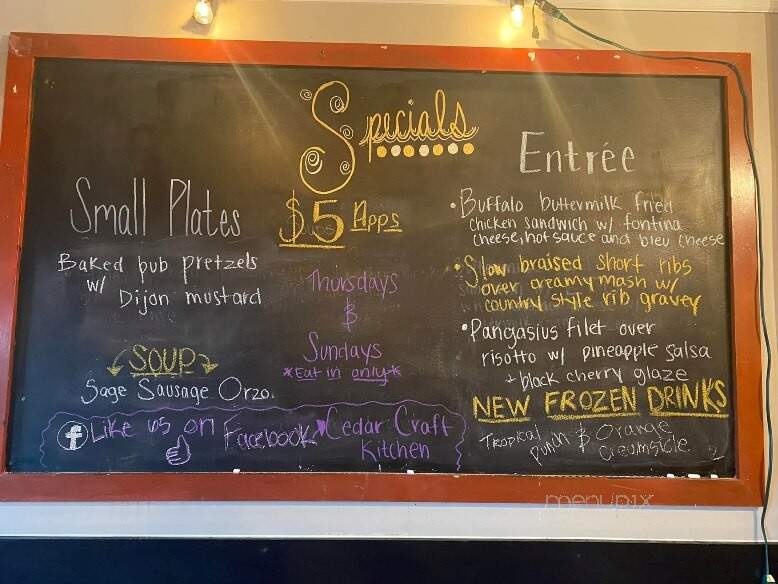 Specials
Small Plates
Baked pub pretzels
w/
Dijon mustard
SOUP
Sage Sausage Orzo.
$5 Apps
Thursdays
&
Sundays
*Eat in only*
Entrée
• Buffalo buttermilk fried
chicken sandwich w/ fontina
cheese, hot sauce and bleu cheese
• Slow braised short ribs
over creamy mash w/
country style rib gravey
• Pangasius filet over
risotto w/ pineapple salsa
+ black cherry glaze
NEW FROZEN DRINKS
Tropical & Orange
punch Creamsicle
f Like us on Facebook Cedar Craft
Kitchen
menupix